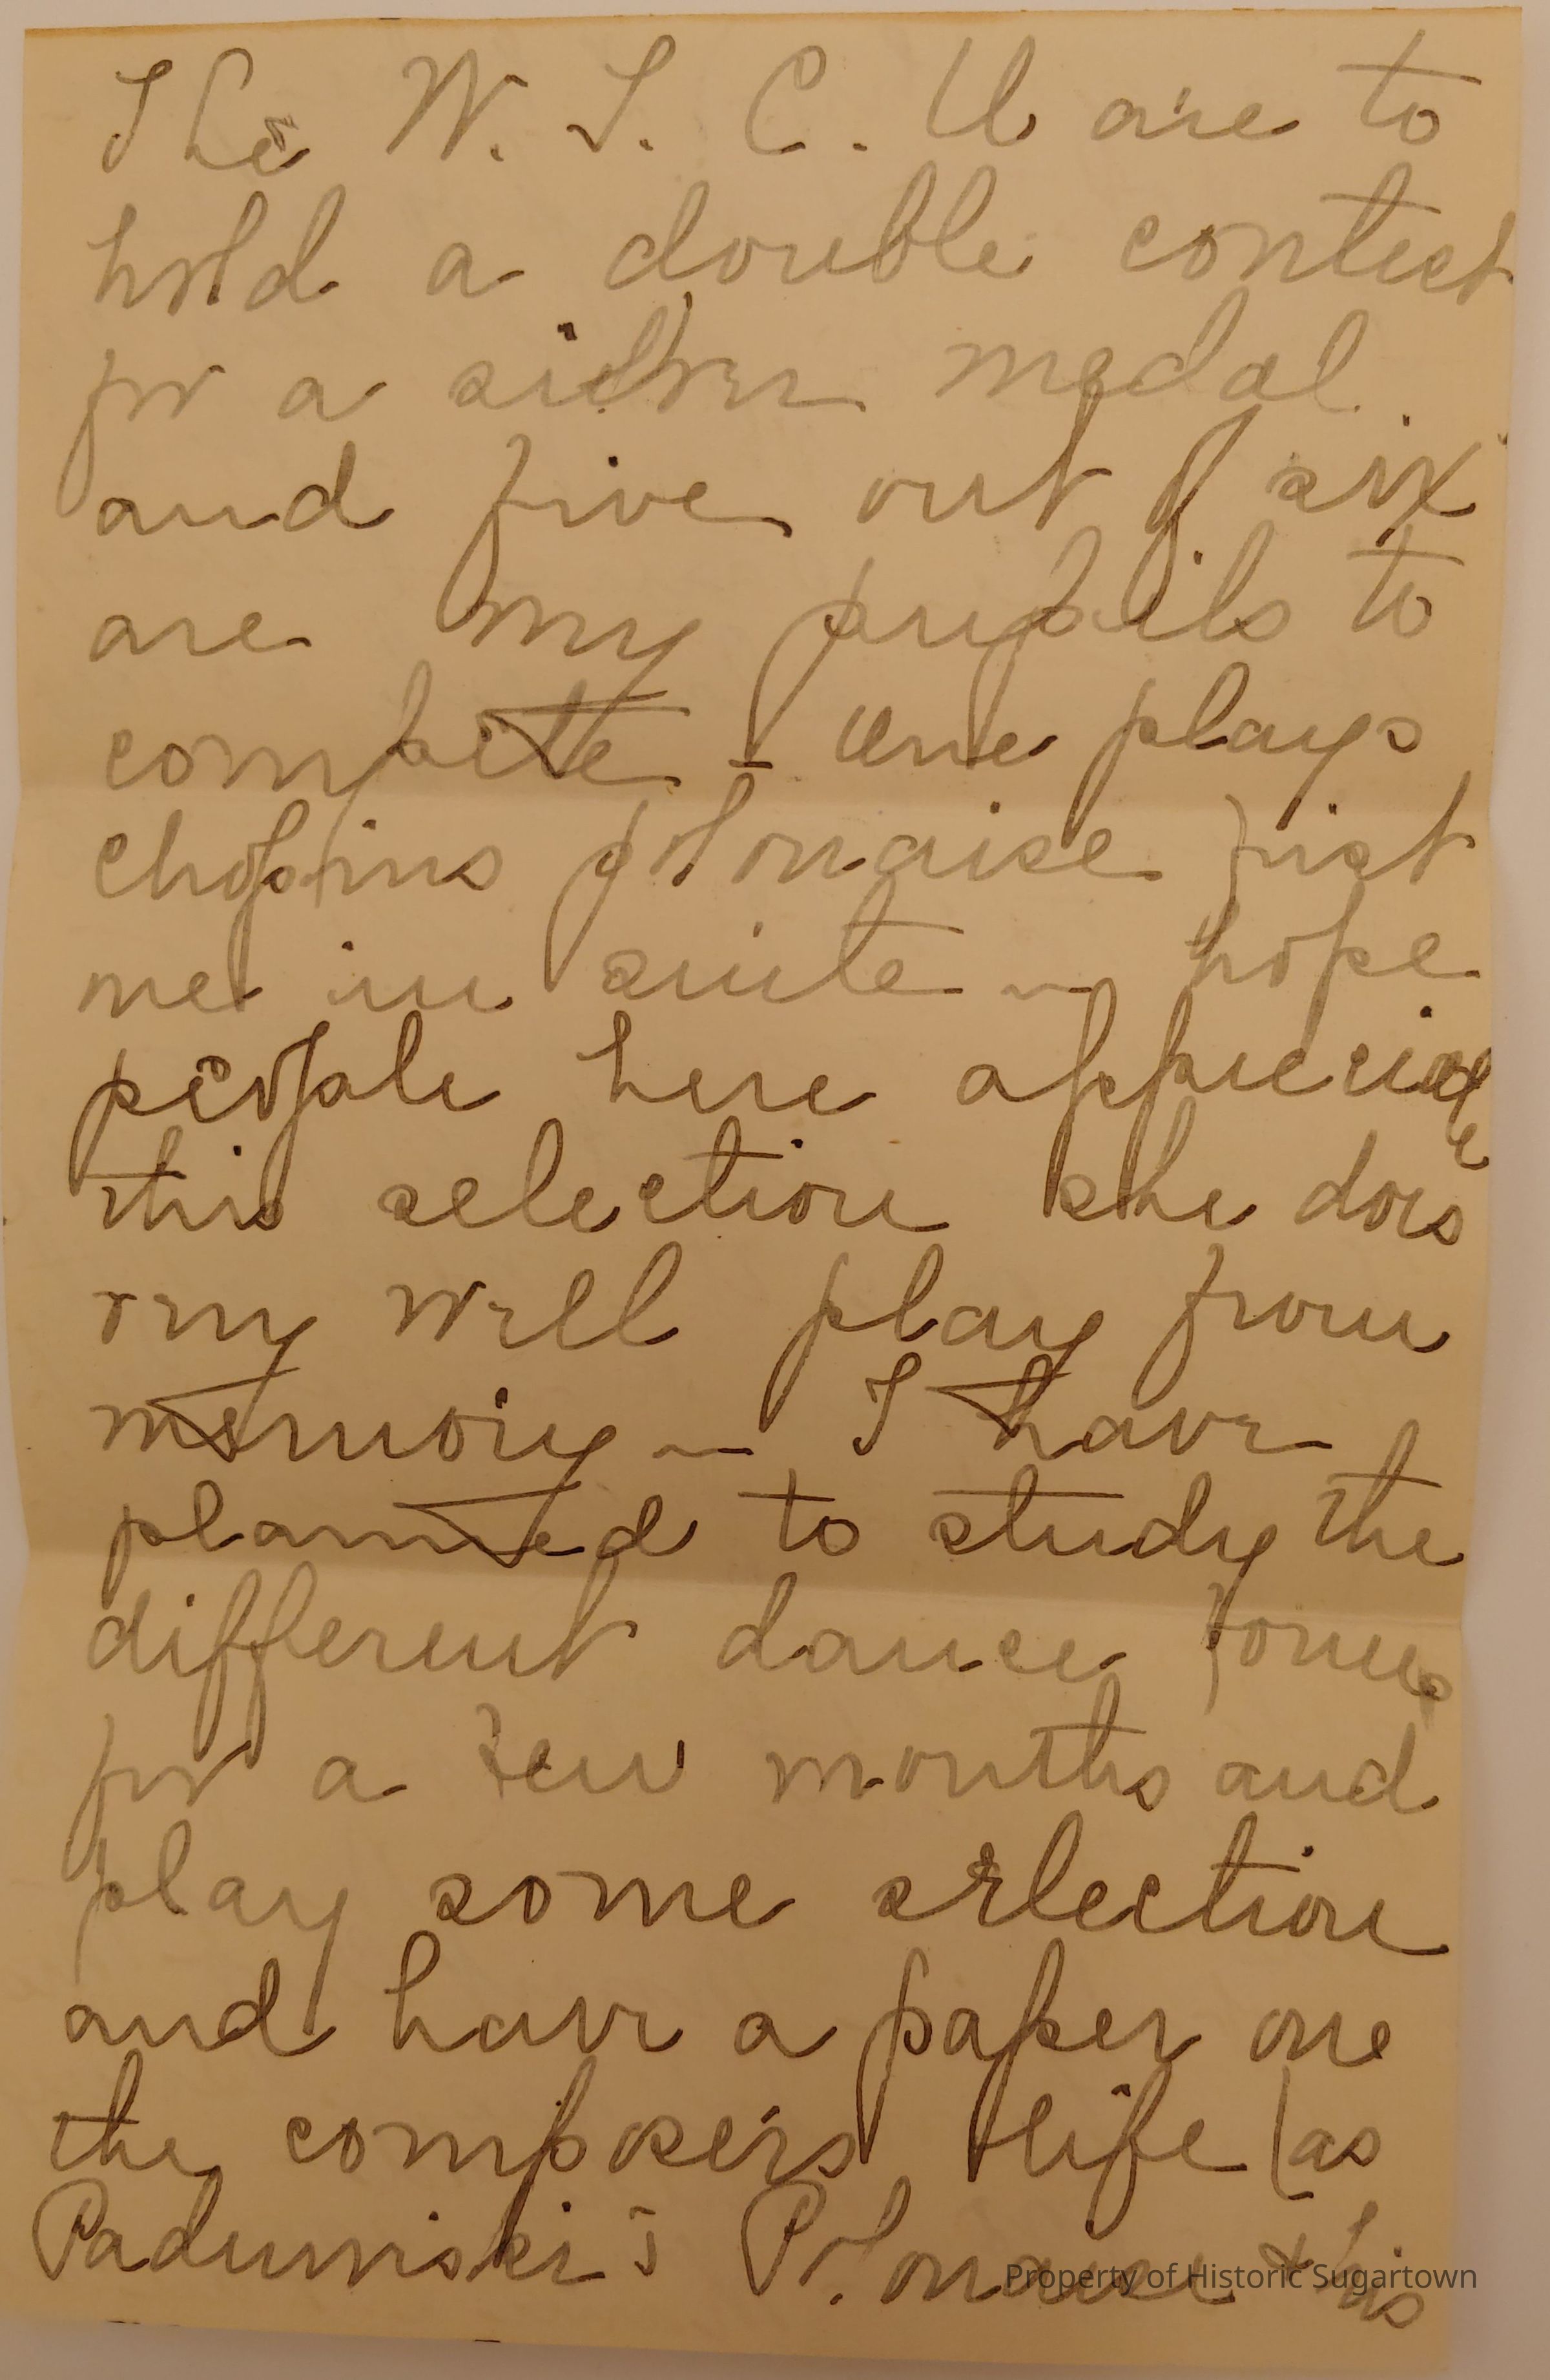 The W. T. C. U are to
hold a double contest
for a silver medal.
and five out of six
are my pupils to
compete - One plays
Chopins polonaise first
me in suite - hope
people here appreciate
this selection she does
very well play from
memory - I have
planned to study the
different dance forms
for a few months and
play some selection
and have a paper one
the composers life (as
Paderwiski's Polonaise & his
Property of Historic Sugartown